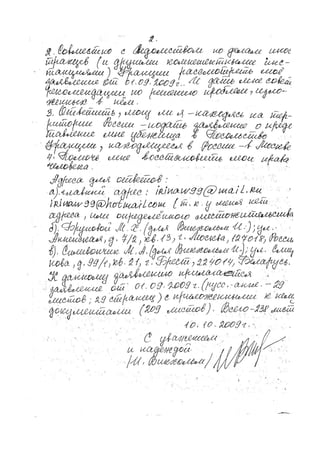 2.
2. Совместно с Ведомством по делам инос-
транцев (и другими компетентными инс-
танциями) Франции рассмотреть моё
заявление от 01.09.2009г. И дать мне совет
рекомендации по решению проблем, изло-
женных в нём.
3. Ответить, могу ли я - находясь на тер-
ритории России - подать заявление о предос-
тавление мне убежища в Посольство
Франции, находящееся в России - в Москве
4. Помочь мне восстановить мои права
человека.
Адреса для ответов:
а) главный адрес: irinavv99@mail.ru
irinavv99@hotmail.com (т.к. у меня нет
адреса, или определённого местожительства
б). М. Х. (для И.); ул.
Аннинская, д. 7/2, кв. 13, г. Москва, 127018, Россия
в). М. А. (для И.); ул.
д. 99/1, кв. 21, г. Брест, 224014, Беларусь.
К данному заявлению прилагаются
заявление от 01.09.2009г. (русс.-англ. - 29
листов; 29 страниц) с приложенными к нему
документами (209 листов). Всего - 238 лист
10.10.2009г.
С уважением
и надеждой